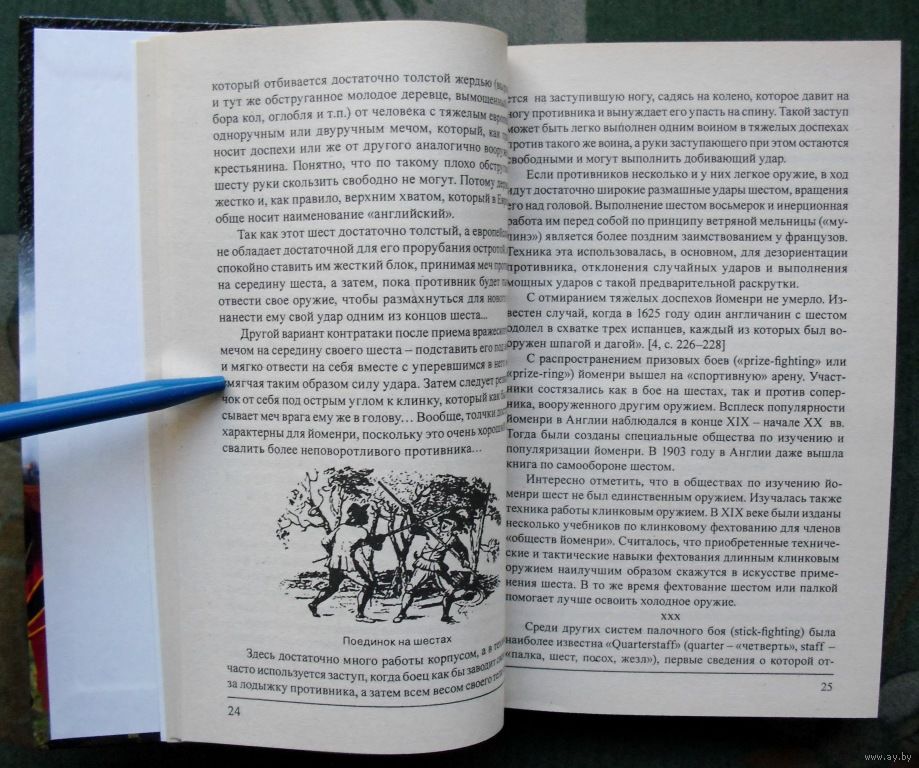 который отбивается достаточно толстой жердью
и тут же обструганное молодое деревце,
бора кол, оглобля и т.п.) от человека с тяжелым
одноручным или двуручным мечом, который, как
носит доспехи или же от другого аналогично
крестьянина. Понятно, что по такому плохо
шесту руки скользить свободно не могут. Потому
жестко и, как правило, верхним хватом, который в
обще носит наименование «английский».
Так как этот шест достаточно толстый, а
не обладает достаточной для его прорубания
спокойно ставить им жесткий блок, принимая меч
на середину шеста, а затем, пока противник будет
отвести свое оружие, чтобы размахнуться для
нанести ему свой удар одним из концов шеста...
Другой вариант контратаки после приема
мечом на середину своего шеста – подставить его
и мягко отвести на себя вместе с уперевшимся в
смягчая таким образом силу удара. Затем следует
чок от себя под острым углом к клинку, который как
сывает меч врага ему же в голову... Вообще, толчки
характерны для йоменри, поскольку это очень
свалить более неповоротливого противника...
Поединок на шестах
Здесь достаточно много работы корпусом, а в
часто используется заступ, когда боец как бы заводит
за лодыжку противника, а затем всем весом своего
24
ется на заступившую ногу, садясь на колено, которое давит на
ногу противника и вынуждает его упасть на спину. Такой заступ
может быть легко выполнен одним воином в тяжелых доспехах
против такого же воина, а руки заступающего при этом остаются
свободными и могут выполнить добивающий удар.
Если противников несколько и у них легкое оружие, в ход
идут достаточно широкие размашные удары шестом, вращения
его над головой. Выполнение шестом восьмерок и инерционная
работа им перед собой по принципу ветряной мельницы («му-
линэ») является более поздним заимствованием у французов.
Техника эта использовалась, в основном, для дезориентации
противника, отклонения случайных ударов и выполнения
мощных ударов с такой предварительной раскрутки.
С отмиранием тяжелых доспехов йоменри не умерло. Из-
вестен случай, когда в 1625 году один англичанин с шестом
одолел в схватке трех испанцев, каждый из которых был во-
оружен шпагой и дагой». [4, с. 226–228]
С распространением призовых боев («prize-fighting» или
«prize-ring») йоменри вышел на «спортивную» арену. Участ-
ники состязались как в бое на шестах, так и против сопер-
ника, вооруженного другим оружием. Всплеск популярности
йоменри в Англии наблюдался в конце XIX – начале XX вв.
Тогда были созданы специальные общества по изучению и
популяризации йоменри. В 1903 году в Англии даже вышла
книга по самообороне шестом.
Интересно отметить, что в обществах по изучению йо-
менри шест не был единственным оружием. Изучалась также
техника работы клинковым оружием. В XIX веке были изданы
несколько учебников по клинковому фехтованию для членов
«обществ йоменри». Считалось, что приобретенные техниче-
ские и тактические навыки фехтования длинным клинковым
оружием наилучшим образом скажутся в искусстве приме-
нения шеста. В то же время фехтование шестом или палкой
помогает лучше освоить холодное оружие.
xxx
Среди других систем палочного боя (stick-fighting) была
наиболее известна «Quarterstaff» (quarter – «четверть», staff –
«палка, шест, посох, жезл»), первые сведения о которой от-
25
www.ay.by